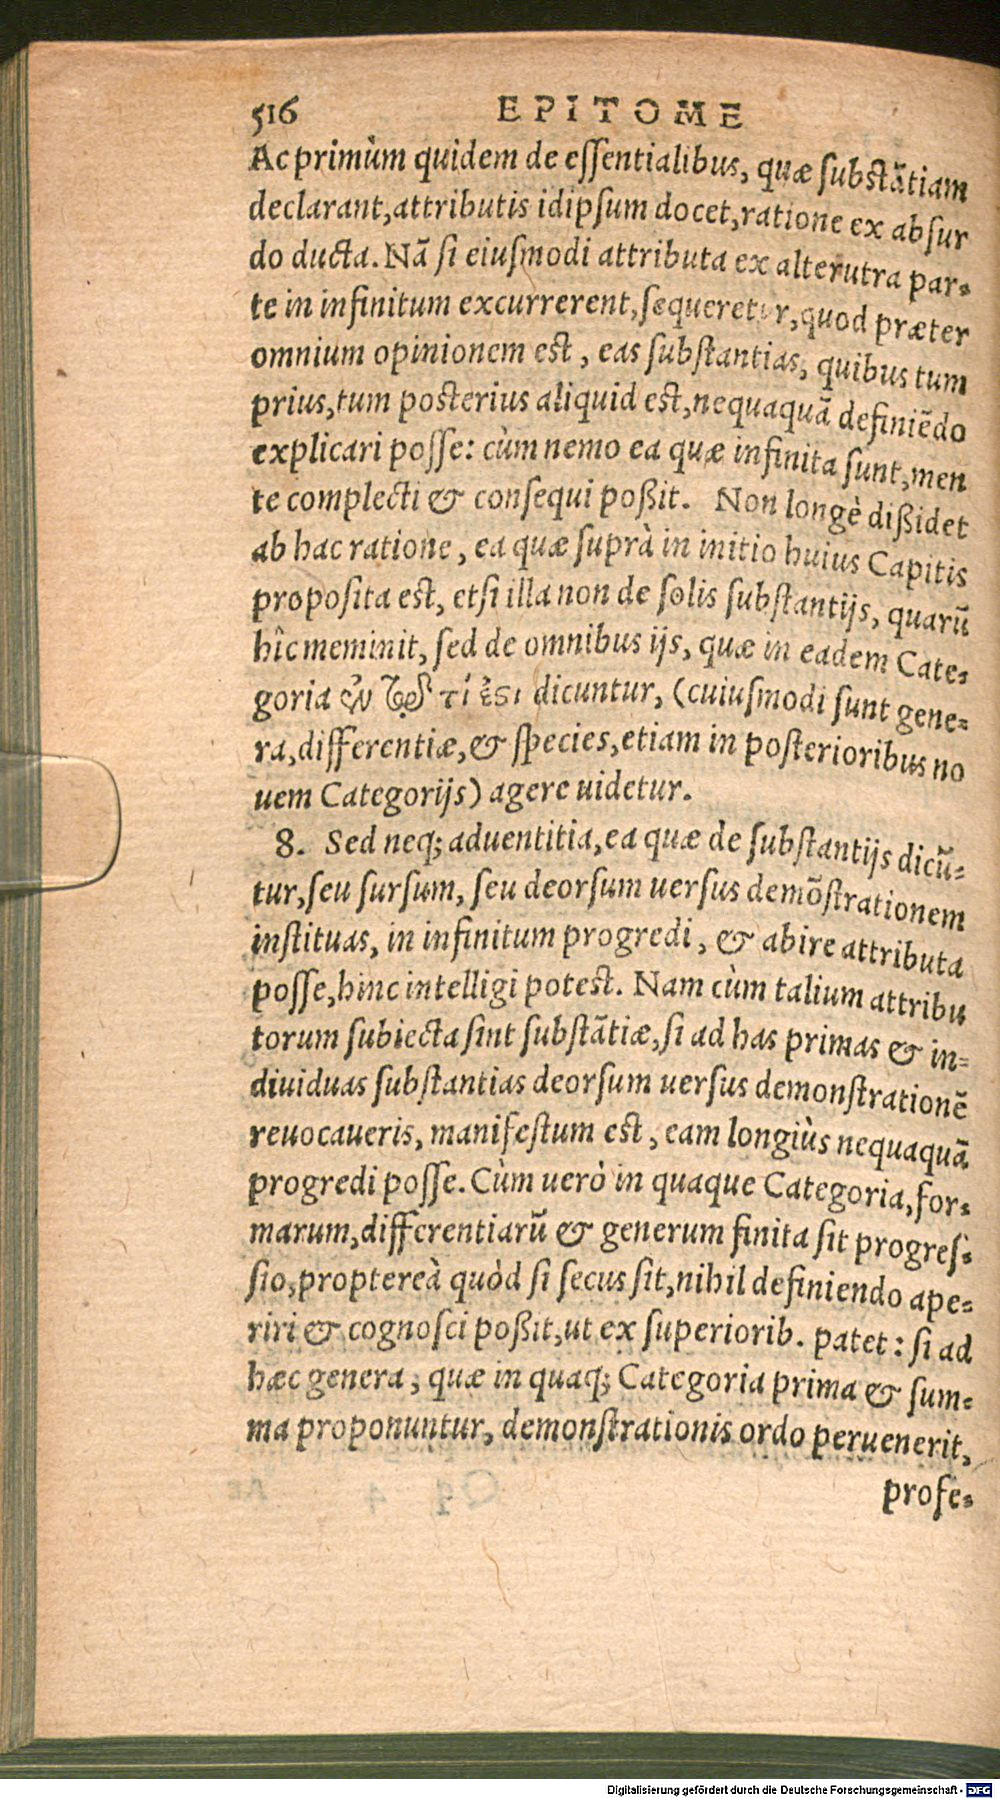 516 EPITOME
Ac primùm quidem de essentialibus, quæ substãtiam
declarant, attributis idipsum docet, ratione ex absur
do ducta. Nã si eiusmodi attributa ex alterutra par-
te in infinitum excurrerent, sequeretur, quod præter
omnium opinionem est, eas substantias, quibus tum
prius, tum posterius aliquid est, nequaquã definiẽdo
explicari posse: cùm nemo ea quæ infinita sunt, men
te complecti & consequi poßit. Non longè dißidet
ab hac ratione, ea quæ suprà in initio huius Capitis
proposita est, etsi illa non de solis substantijs, quarũ
hîc meminit, sed de omnibus ijs, quæ in eadem Cate-
goria τί ἐστι dicuntur, (cuiusmodi sunt gene-
ra, differentiæ, & species, etiam in posterioribus no
uem Categorijs) agere uidetur.
8. Sed neq; aduentitia, ea quæ de substantijs dicũ-
tur, seu sursum, seu deorsum uersus demõstrationem
instituas, in infinitum progredi, & abire attributa
posse, hinc intelligi potest. Nam cùm talium attribu
torum subiecta sint substãtiæ, si ad has primas & in-
diuiduas substantias deorsum uersus demonstrationẽ
reuocaueris, manifestum est, eam longiùs nequaquã
progredi posse. Cùm uerò in quaque Categoria, for-
marum, differentiarũ & generum finita sit progres-
sio, propterea quòd si secus sit, nihil definiendo ape-
riri & cognosci poßit, ut ex superiorib. patet: si ad
hæc genera, quæ in quaq; Categoria prima & sum-
ma proponuntur, demonstrationis ordo peruenerit,
profe-
Digitalisierung gefördert durch die Deutsche Forschungsgemeinschaft - DFG